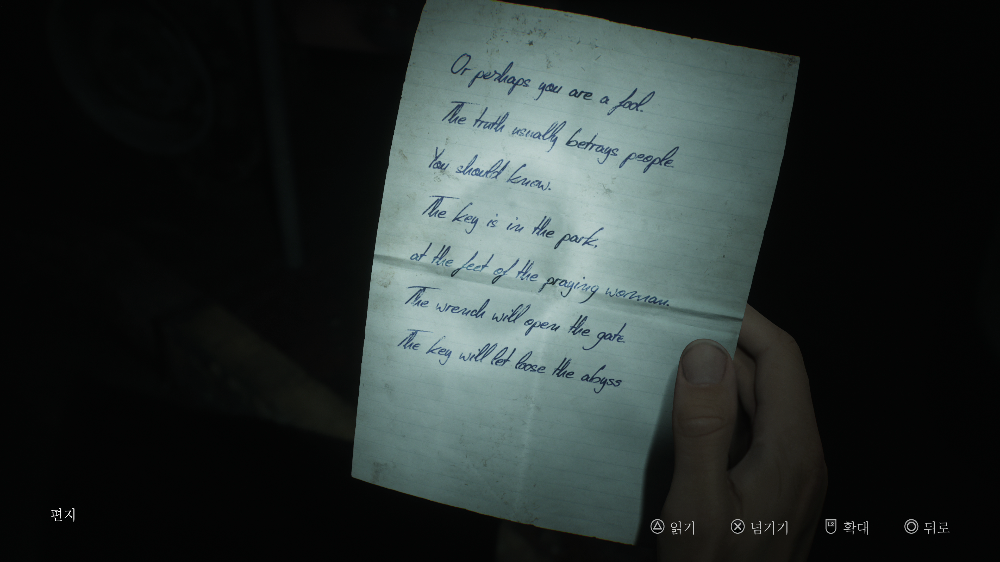 Or perhaps you are a fool.
The truth usually betrays people.
You should know.
The key is in the park,
at the feet of the praying woman.
The wrench will open the gate.
The key will let loose the abyss
편지
읽기 넘기기 L2 확대 뒤로